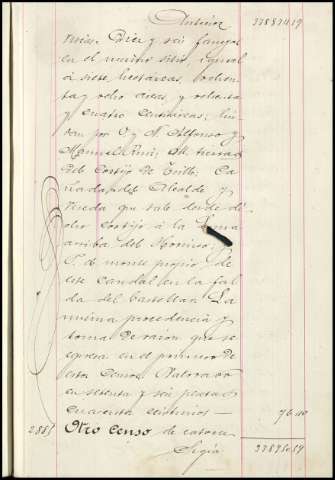 Anterior 37887419
Diez y seis fanegas
en el mismo sitio, igual
á siete hectáreas, ochen
ta y ocho áreas, y ochenta
y cuatro centiáreas; lin
dan por O y N. Alfonso y
Manuel M. tierras
del Cortijo de Ca
ñada del Alcalde y
vereda que sale desde di
cho Cortijo á la Loma
arriba del Hornico; y
P. de monte propio de
este caudal en la fal
da del La
misma procedencia y
toma de razon que se
espresa en el primero de
esta Valorado
en setenta y seis pesetas
cuarenta céntimos — 76 40
288 Otro censo de catorce
Sigue 3789